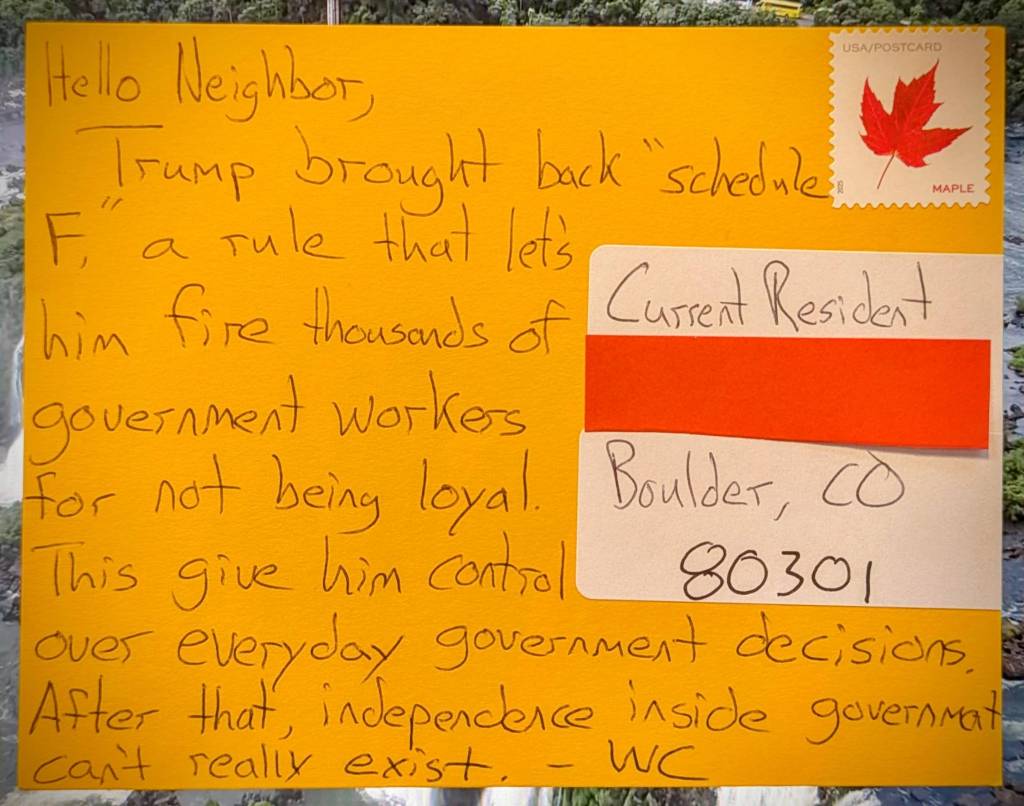 Hello Neighbor,
USA/POSTCARD
MAPLE
Trump brought back "schedule
F," a rule that let's
him fire thousands of
government workers
for not being loyal.
This give him control
over everyday government decisions.
After that, independence inside government
can't really exist. - WC
Current Resident
Boulder, CO
80301